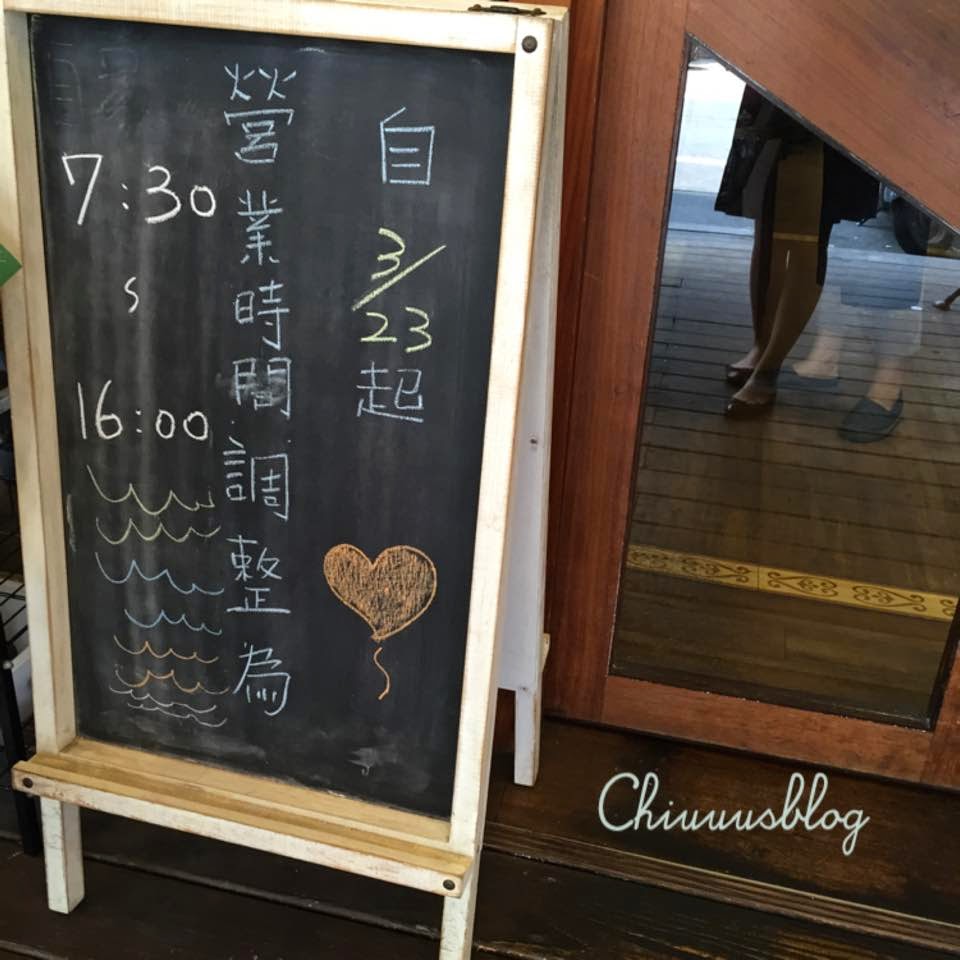 自3/23起
營業時間調整為
7:30
s
16:00
Chiuuusblog